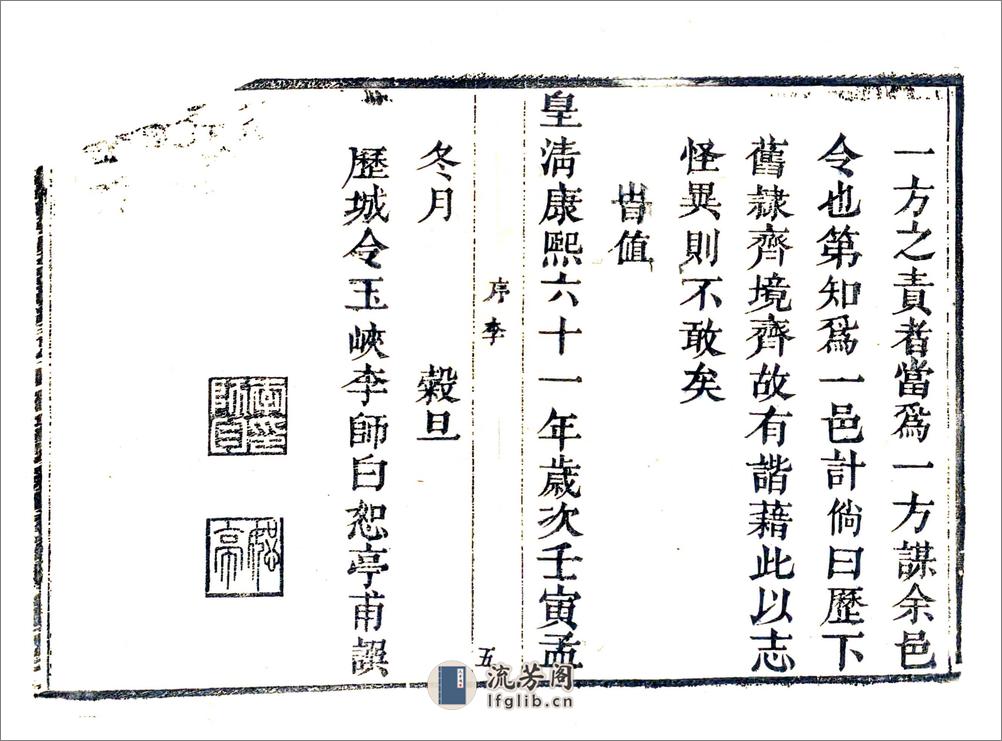 一方之責者當爲一方謀余邑
令也第知爲一邑計倘曰歷下
舊隷齊境齊故有諧藉此以志
怪異則不敢矣
旹值
皇淸康熙六十一年歲次壬寅孟
冬月 榖旦
歷城令玉峽李師白恕亭甫譔
序李
五
師白
恕亭
流芳阁
lfglib.cn